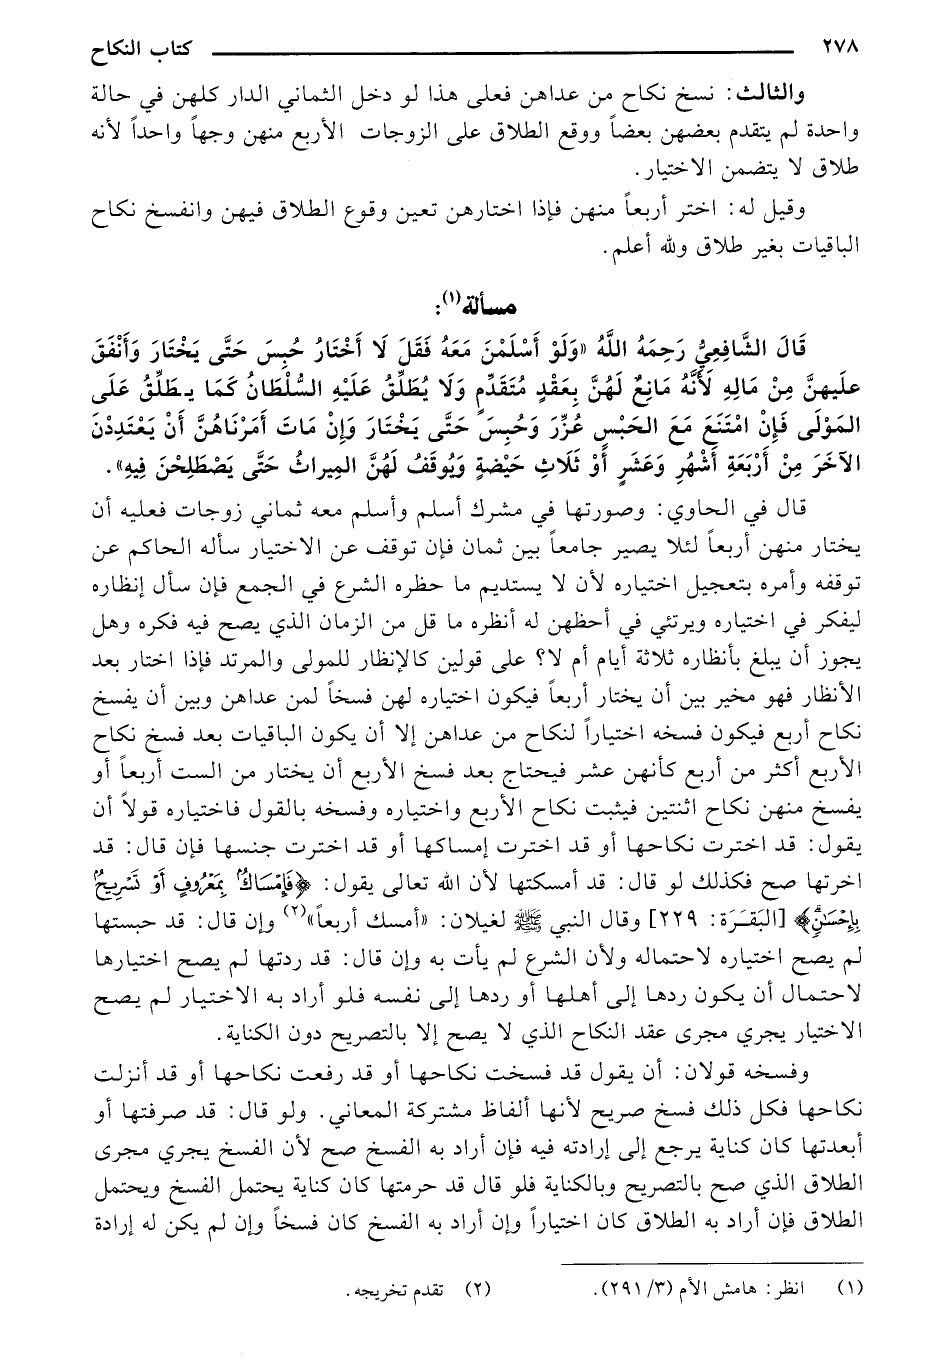 ٢٧٨ كتاب النكاح
والثالث: نسخ نكاح من عداهن فعلى هذا لو دخل الثماني الدار كلهن في حالة
واحدة لم يتقدم بعضهن بعضاً ووقع الطلاق على الزوجات الأربع منهن وجهاً واحداً لأنه
طلاق لا يتضمن الاختيار.
وقيل له: اختر أربعاً منهن فإذا اختارهن تعين وقوع الطلاق فيهن وانفسخ نكاح
الباقيات بغير طلاق ولله أعلم.
مسألة(١):
قَالَ الشَّافِعِيُّ رَحِمَهُ اللَّهُ «وَلَوْ أَسْلَمْنَ مَعَهُ فَقَلَ لَا أَخْتَارُ حُبِسَ حَتَّى يَخْتَارَ وَأَنْفَقَ
عَلَيهِنَّ مِنْ مَالِهِ لأَنَّهُ مَانِعٌ لَهُنَّ بِعَقْدٍ مُتَقَدِّمٍ وَلَا يُطَلِّقُ عَلَيْهِ السُّلْطَانُ كَمَا يطَلِّقُ عَلَى
المَوْلَى فَإِنْ امْتَنَعَ مَعَ الحَبْسِ عُزِّرَ وَحُبِسَ حَتَّى يَخْتَارَ وَإِنْ مَاتَ أَمَرْنَاهُنَّ أَنْ يَعْتَدِدْنَ
الآخَرَ مِنْ أَرْبَعَةِ أَشْهُرٍ وَعَشَرٍ أَوْ ثَلَاثِ حَيْضَةٍ وَيُوقَفُ لَهُنَّ المِيراثُ حَتَّى يَصْطَلِحْنَ فِيهِ».
قال في الحاوي: وصورتها في مشرك أسلم وأسلم معه ثماني زوجات فعليه أن
يختار منهن أربعاً لئلا يصير جامعاً بين ثمان فإن توقف عن الاختيار سأله الحاكم عن
توقفه وأمره بتعجيل اختياره لأن لا يستديم ما حظره الشرع في الجمع فإن سأل إنظاره
ليفكر في اختياره ويرتئي في أحظهن له أنظره ما قل من الزمان الذي يصح فيه فكره وهل
يجوز أن يبلغ بأنظاره ثلاثة أيام أم لا؟ على قولين كالإنظار للمولى والمرتد فإذا اختار بعد
الأنظار فهو مخير بين أن يختار أربعاً فيكون اختياره لهن فسخاً لمن عداهن وبين أن يفسخ
نكاح أربع فيكون فسخه اختياراً لنكاح من عداهن إلا أن يكون الباقيات بعد فسخ نكاح
الأربع أكثر من أربع كأنهن عشر فيحتاج بعد فسخ الأربع أن يختار من الست أربعاً أو
يفسخ منهن نكاح اثنتين فيثبت نكاح الأربع واختياره وفسخه بالقول فاختياره قولاً أن
يقول: قد اخترت نكاحها أو قد اخترت إمساكها أو قد اخترت جنسها فإن قال: قد
اخرتها صح فكذلك لو قال: قد أمسكتها لأن الله تعالى يقول: ﴿فَإِمْسَاكٌ بِمَعْرُوفٍ أَوْ تَسْرِيحٌ
بِإِحْسَٰنٍ﴾ [البَقَرَة: ٢٢٩] وقال النبي ﷺ لغيلان: «أمسك أربعاً»(٢) وإن قال: قد حبستها
لم يصح اختياره لاحتماله ولأن الشرع لم يأت به وإن قال: قد ردتها لم يصح اختيارها
لاحتمال أن يكون ردها إلى أهلها أو ردها إلى نفسه فلو أراد به الاختيار لم يصح
الاختيار يجري مجرى عقد النكاح الذي لا يصح إلا بالتصريح دون الكناية.
وفسخه قولان: أن يقول قد فسخت نكاحها أو قد رفعت نكاحها أو قد أنزلت
نكاحها فكل ذلك فسخ صريح لأنها ألفاظ مشتركة المعاني. ولو قال: قد صرفتها أو
أبعدتها كان كناية يرجع إلى إرادته فيه فإن أراد به الفسخ صح لأن الفسخ يجري مجرى
الطلاق الذي صح بالتصريح وبالكناية فلو قال قد حرمتها كان كناية يحتمل الفسخ ويحتمل
الطلاق فإن أراد به الطلاق كان اختياراً وإن أراد به الفسخ كان فسخاً وإن لم يكن له إرادة
(١) انظر: هامش الأم (٣/ ٢٩١). (٢) تقدم تخريجه.